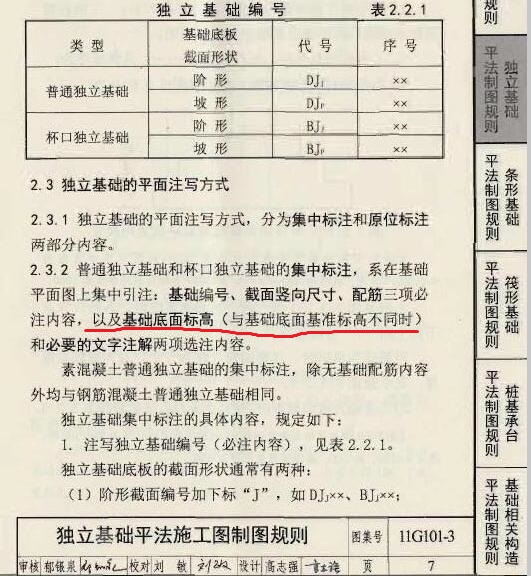 独立基础编号 表2.2.1
类型 基础底板截面形状 代号 序号
普通独立基础 阶形 DJJ ××
坡形 DJP ××
杯口独立基础 阶形 BJJ ××
坡形 BJP ××
2.3 独立基础的平面注写方式
2.3.1 独立基础的平面注写方式，分为集中标注和原位标注
两部分内容。
2.3.2 普通独立基础和杯口独立基础的集中标注，系在基础
平面图上集中引注：基础编号、截面竖向尺寸、配筋三项必
注内容，以及基础底面标高（与基础底面基准标高不同时）
和必要的文字注解两项选注内容。
素混凝土普通独立基础的集中标注，除无基础配筋内容
外均与钢筋混凝土普通独立基础相同。
独立基础集中标注的具体内容，规定如下：
1. 注写独立基础编号（必注内容），见表2.2.1。
独立基础底板的截面形状通常有两种：
（1）阶形截面编号加下标“J”，如DJJ××、BJJ××；
独立基础平法施工图制图规则 图集号 11G101-3
审核 郁银泉 校对 刘敏 设计 高志强 页 7
规则
独立基础
平法制图规则
条形基础
平法制图规则
筏形基础
平法制图规则
桩基承台
平法制图规则
基础相关构造
平法制图规则